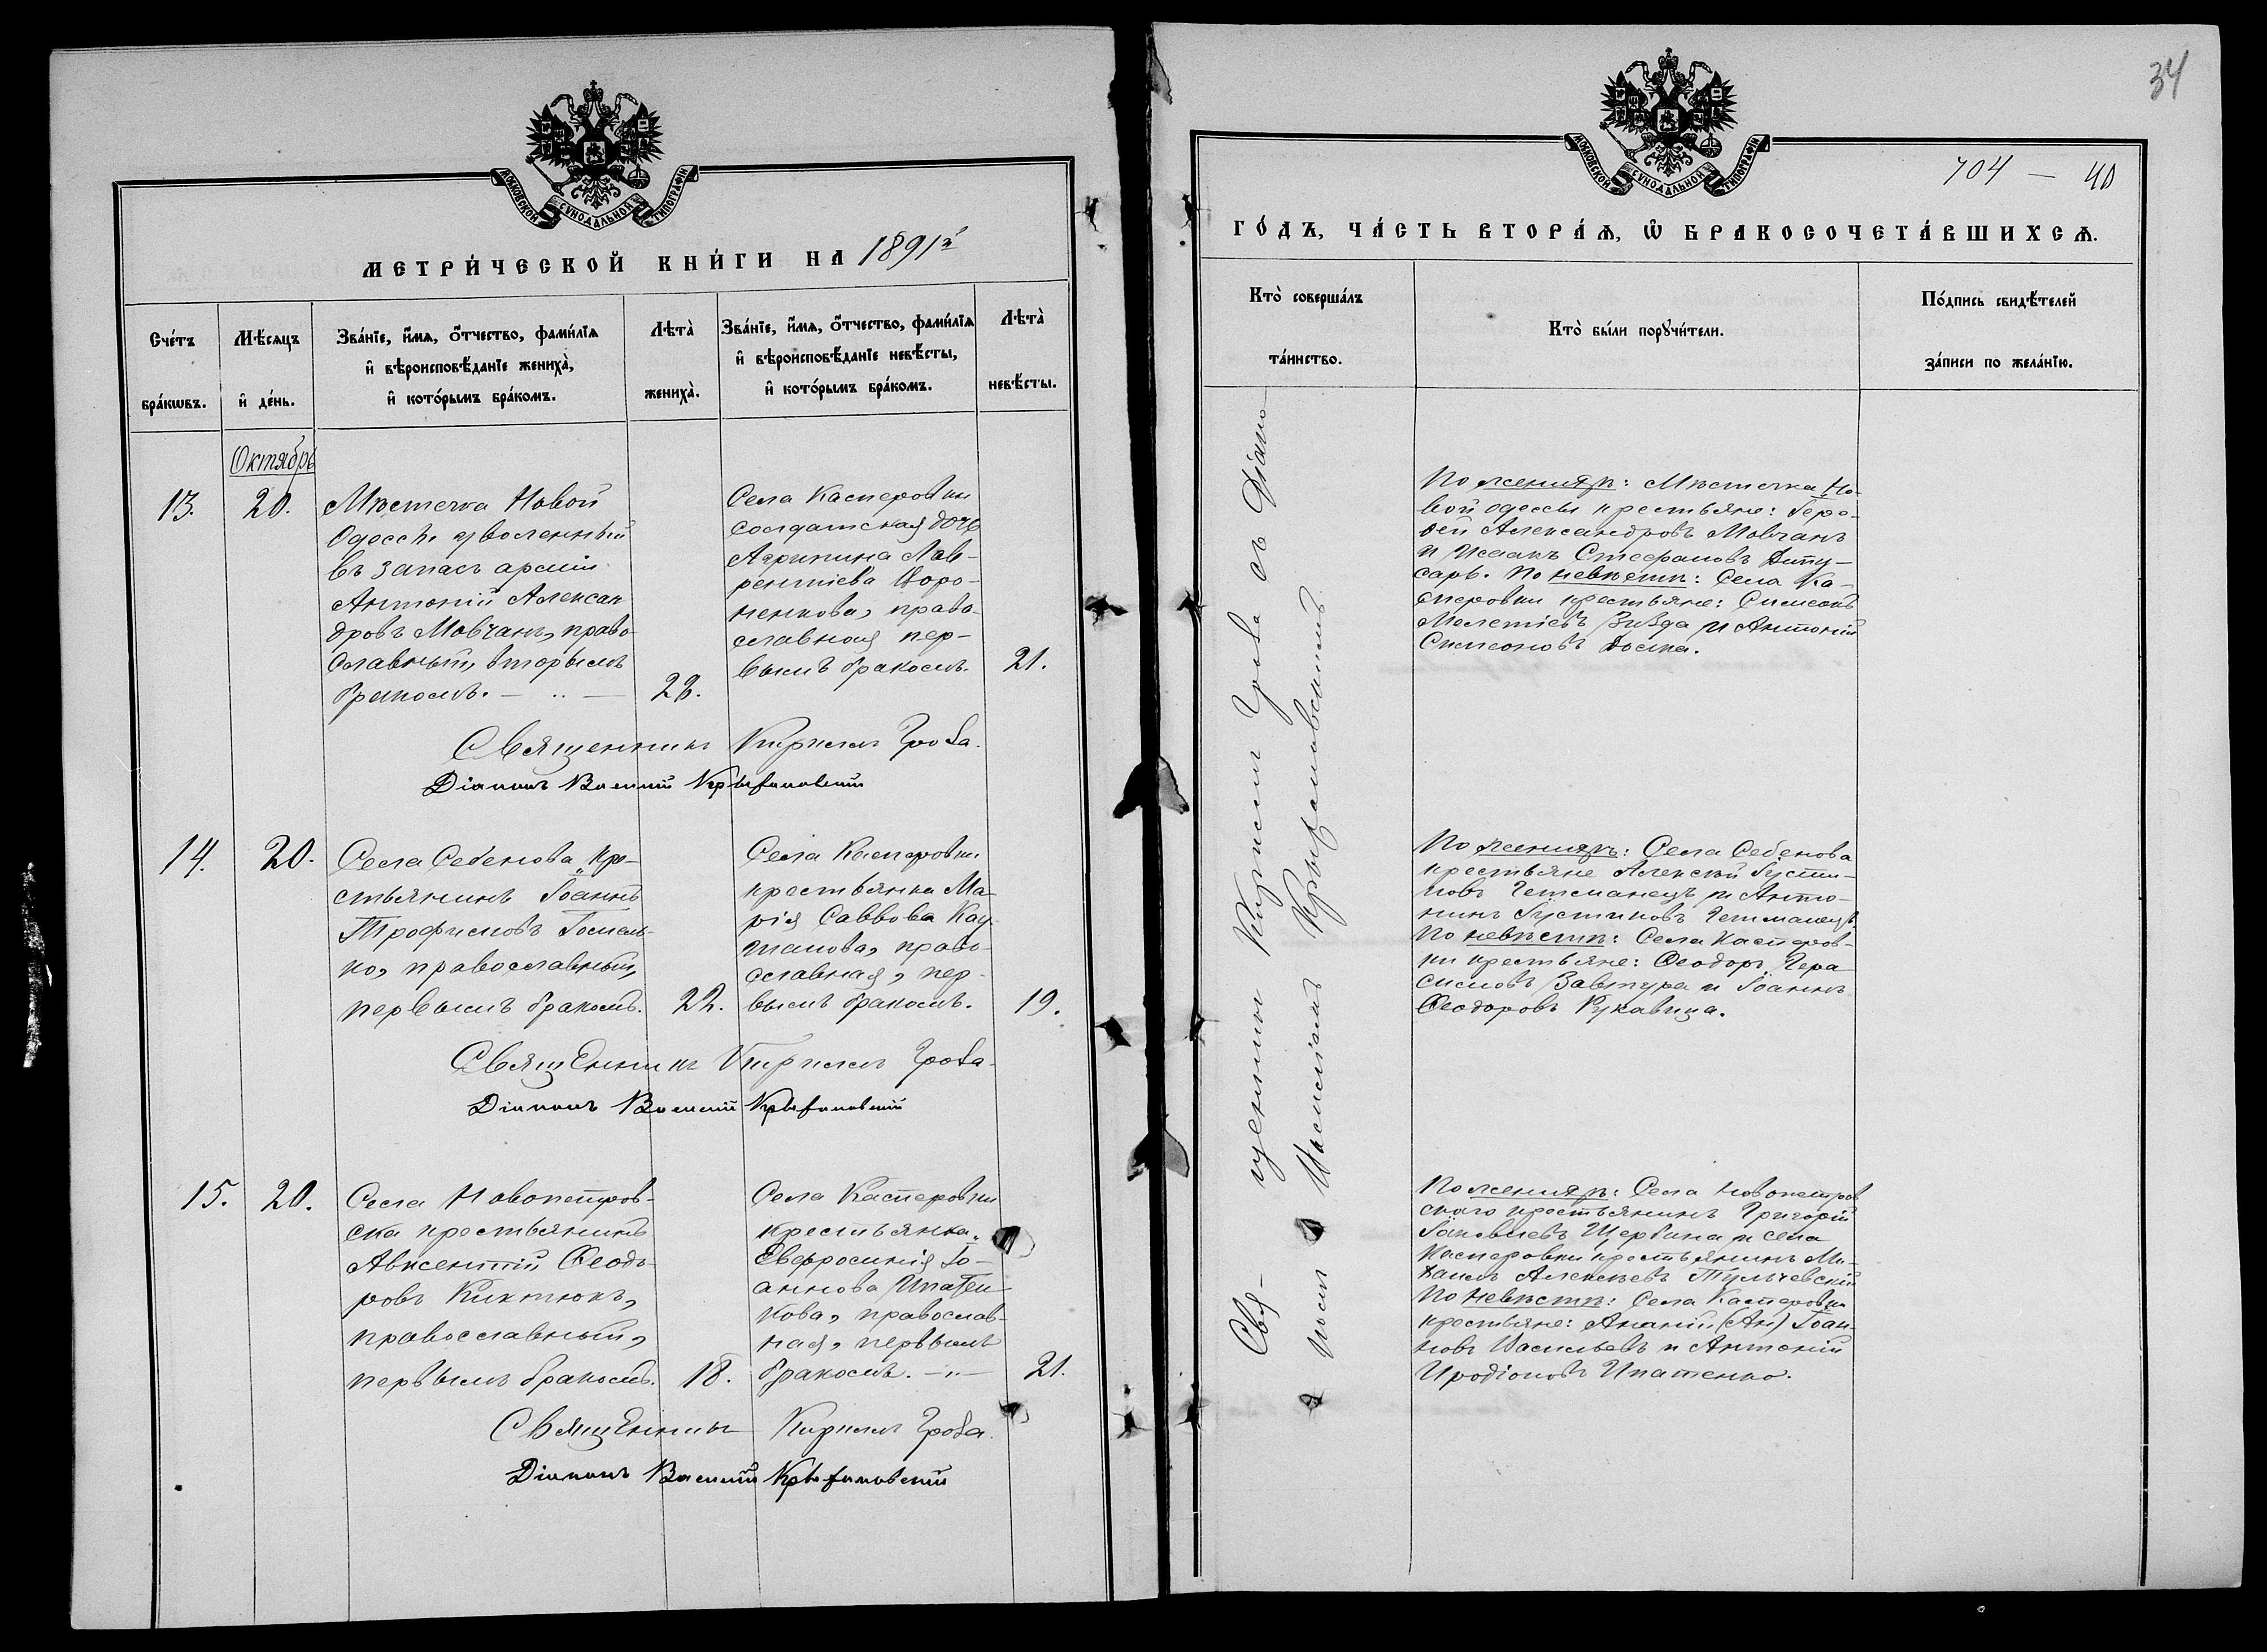 МОСКОВСКОЙ СУНОДАЛЬНОЙ ТИПОГРАФІИ
МЕТРИ́ЧЕСКОЙ КНИ́ГИ НА 1891й
Сче́тъ бра́кѡвъ.
Мѣ́сѧцъ и҆ де́нь.
Зва́нїе, и҆́мѧ, ѻ҆́тчество, фами́лїѧ
и҆ вѣроисповѣ́данїе жениха̀,
и҆ кото́рымъ бра́комъ.
Лѣта̀
жениха̀.
Зва́нїе, и҆́мѧ, ѻ҆́тчество, фами́лїѧ
и҆ вѣроисповѣ́данїе невѣ́сты,
и҆ кото́рымъ бра́комъ.
Лѣта̀
невѣ́сты.
Октябрь
13.
20.
Мѣстечка Новой
Одессы уволенный
въ запасъ арміи
Антоній Алексан
дровъ Мовчанъ, право-
славный, вторымъ
бракомъ.
28.
Села Касперовки
солдатская дочь
Агрипина Лав-
рентіева Воро-
ненкова, право-
славная пер-
вымъ бракомъ.
21.
Священникъ Кириллъ Грова.
Діаконъ Василій Крыжановскій
14.
20.
Села Себенова кре-
стьянинъ Іоаннъ
Трофимовъ
но, православный,
первымъ бракомъ.
22.
Села Касперовки
крестьянка Ма-
рія Саввова Кау-
шанова, право-
славная, пер-
вымъ бракомъ.
19.
Священникъ Кириллъ Грова.
Діаконъ Василій Крыжановскій
15.
20.
Села Новопетров-
ска крестьянинъ
Авксентій Ѳеодо-
ровъ Киктюкъ,
православный,
первымъ бракомъ.
18.
Села Касперовки
крестьянка
Евфросинія Іо-
аннова Ипатен-
кова, православ-
ная, первымъ
бракомъ.
21.
Священникъ Кириллъ Грова.
Діаконъ Василій Крыжановскій
34
МОСКОВСКОЙ СУНОДАЛЬНОЙ ТИПОГРАФІИ
704 — 40
ГО́ДЪ, ЧА́СТЬ ВТОРА́Ѧ, Ѡ҆ БРАКОСОЧЕТА́ВШИХСѦ.
Кто̀ соверша́лъ
та́инство.
Кто̀ бы́ли порꙋчи́тели.
По́дпись свидѣ́телей
за́писи по жела́нїю.
Священникъ Кириллъ Грова съ Діако-
номъ Василіемъ Крыжановскимъ.
По женихѣ: Мѣстечка Но-
вой Одессы крестьяне:
Александровъ Мовчанъ
и Исаакъ Стефановъ
сарь. По невѣстѣ: Села Ка-
сперовки крестьяне: Симеонъ
Мелетіевъ Зизда и Антоній
Симеоновъ
По женихѣ: Села Себенова
крестьяне Алексѣй Іусти-
новъ Гетманецъ и Анто-
нинъ Іустиновъ Гетманецъ.
По невѣстѣ: Села Касперов-
ки крестьяне: Ѳеодоръ Гера
симовъ Завтура и Іоаннъ
Ѳеодоровъ Рукавица.
По женихѣ: Села Новопетров
скаго крестьянинъ Григорій
Іаковлевъ Щербина и села
Касперовки крестьянинъ Ми-
хаилъ Алексѣевъ Тульчевскій
По невѣстѣ: Села Касперовки
крестьяне: Ананій (Ан) Іоан-
новъ Васильевъ и Антоній
Иродіоновъ Ипатенко.